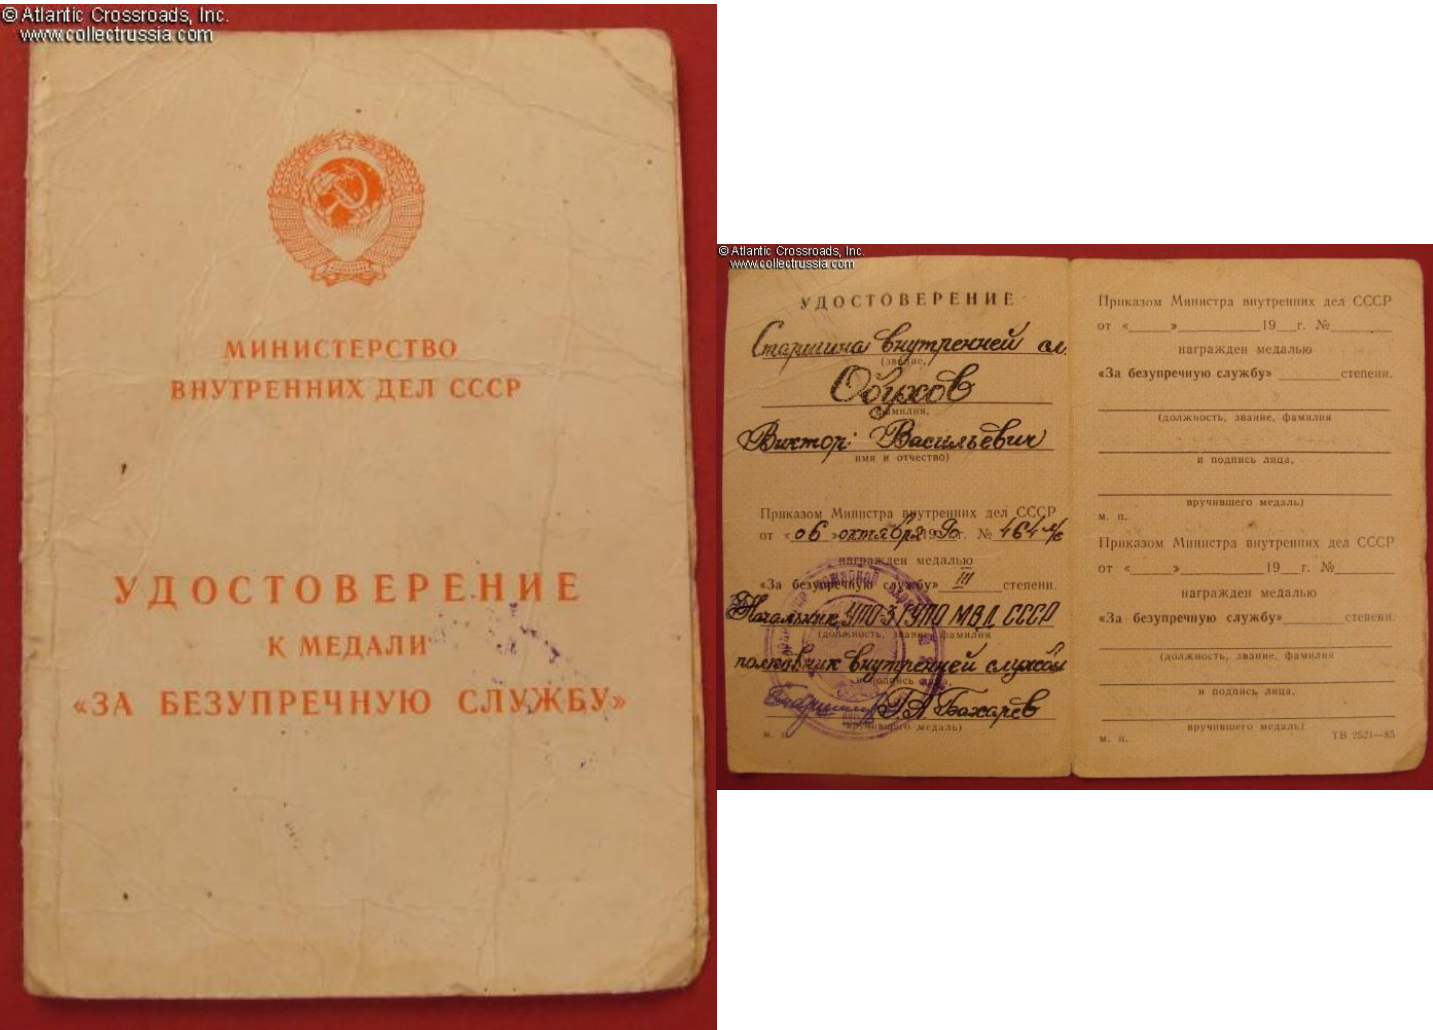 © Atlantic Crossroads, Inc.
www.collectrussia.com
МИНИСТЕРСТВО
ВНУТРЕННИХ ДЕЛ СССР
УДОСТОВЕРЕНИЕ
К МЕДАЛИ
«ЗА БЕЗУПРЕЧНУЮ СЛУЖБУ»
© Atlantic Crossroads, Inc.
www.collectrussia.com
УДОСТОВЕРЕНИЕ
Старшина внутренней сл.
(звание,
Обухов
фамилия,
Виктор Васильевич
имя и отчество)
Приказом Министра внутренних дел СССР
от «06» октября 1990 г. № 464 л/с
награжден медалью
«За безупречную службу» III степени.
Начальник УПО-3 ГУПО МВД СССР
(должность, звание, фамилия
полковник внутренней службы
и подпись лица,
Г.А. Бохарев
вручившего медаль)
м. п.
Приказом Министра внутренних дел СССР
от «_____»__________19__г. №______
награжден медалью
«За безупречную службу» ______степени.
(должность, звание, фамилия
и подпись лица,
вручившего медаль)
м. п.
Приказом Министра внутренних дел СССР
от «_____»__________19__г. №______
награжден медалью
«За безупречную службу»______степени.
(должность, звание, фамилия
и подпись лица,
вручившего медаль)
м. п.
ТВ 2521—85